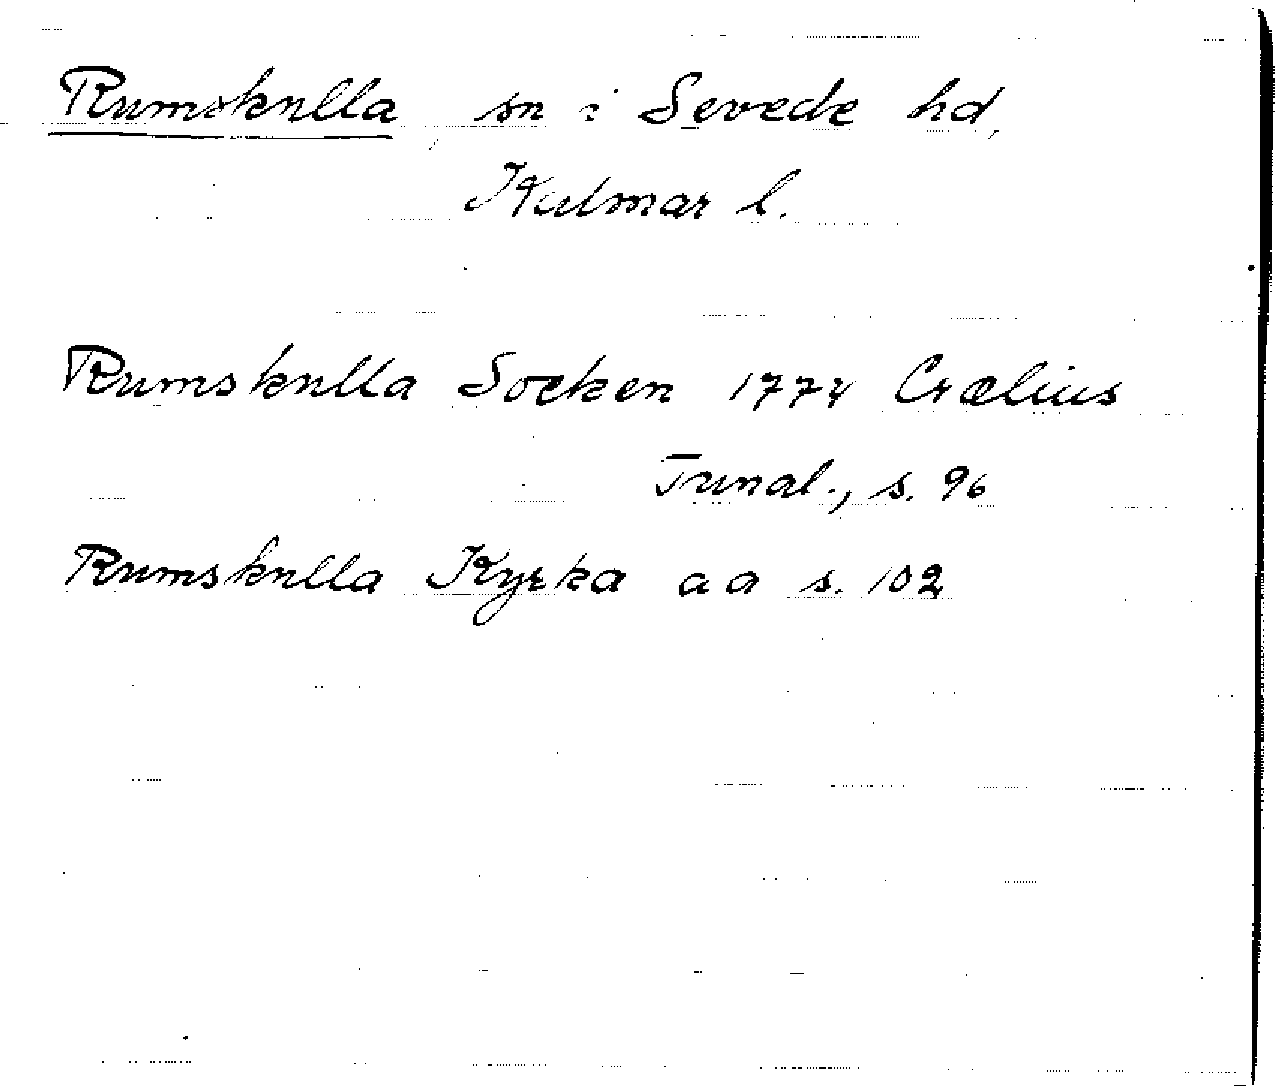 Rumskulla, sn i Sevede hd,
Kalmar l.
Rumskulla Socken 1774 Crælius
Tunal., s. 96
Rumskulla Kyrka aa s. 102